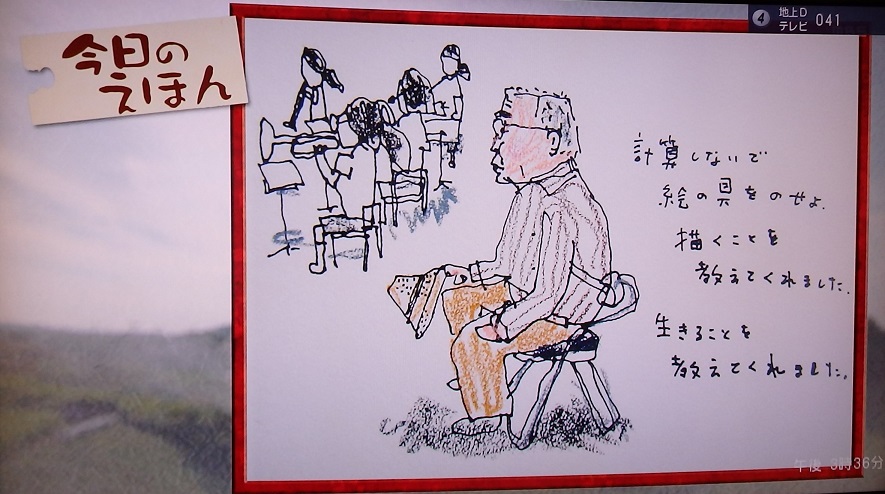 今日の
えほん
4 地上D
テレビ 041
計算しないで
絵の具をのせよ.
描くことを
教えてくれました.
生きることを
教えてくれました.
午後 3時36分